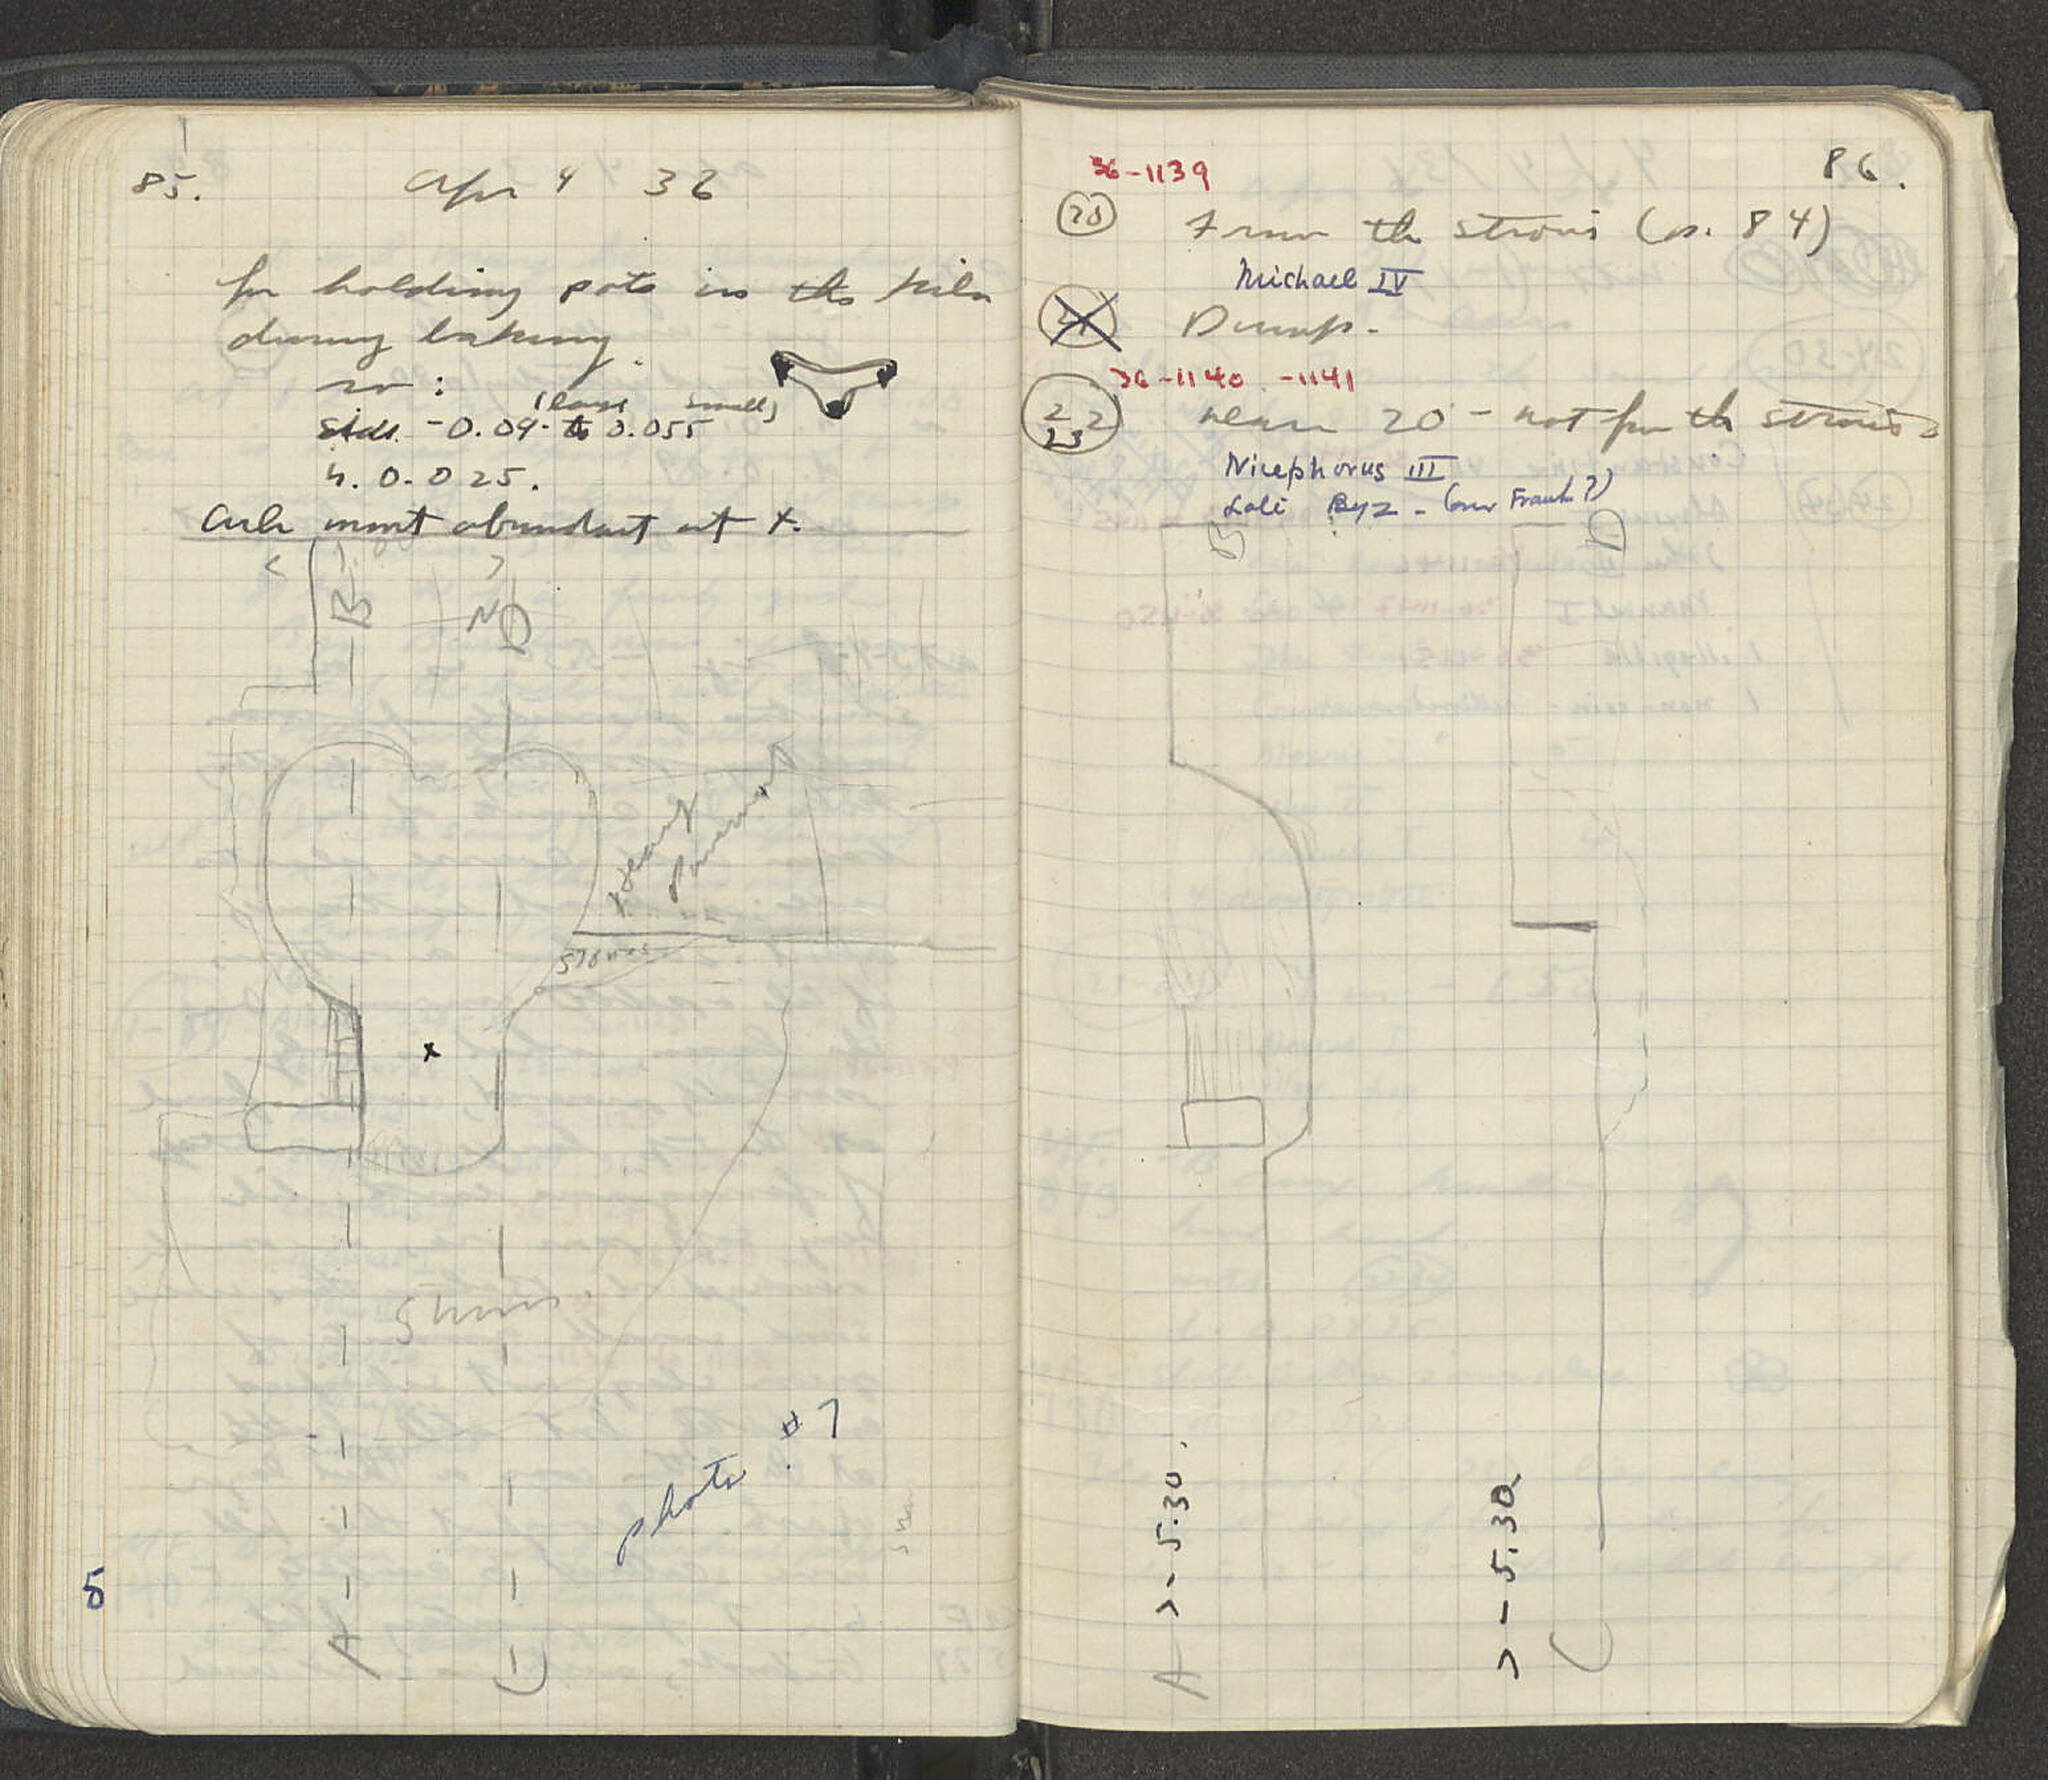 85.
Apr 4 36
for holding pots in the kiln
during baking.
so:
(large small)
side - 0.09 - to 0.055
h. 0.025.
most abundant at x.
B
N
D
Heavy
Pavement
stones
x
photo #7
5
A
C
86.
36-1139
20 From the strosis (p. 84)
Michael IV
21 Dump.
36-1140 -1141
22 near 20 - not from the strosis
23
Nicephorus III
Late Byz - (or Frank?)
B
D
A > - 5.30.
C > - 5.30